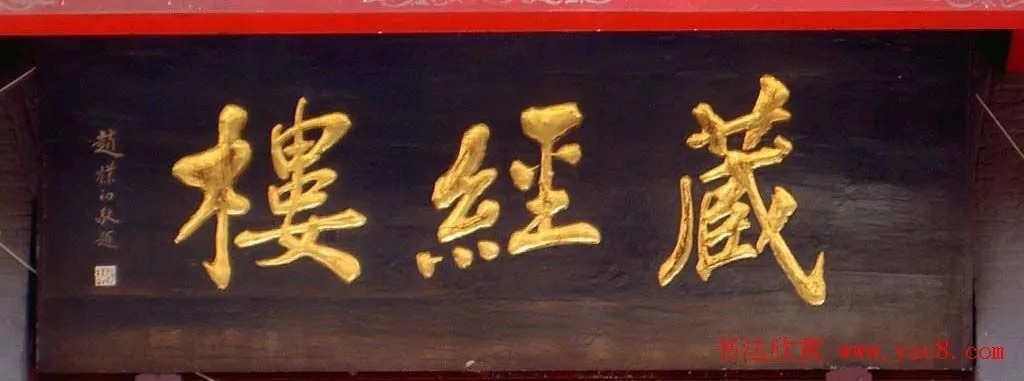 藏經樓
趙樸初敬題
书法欣赏 www.yac8.com